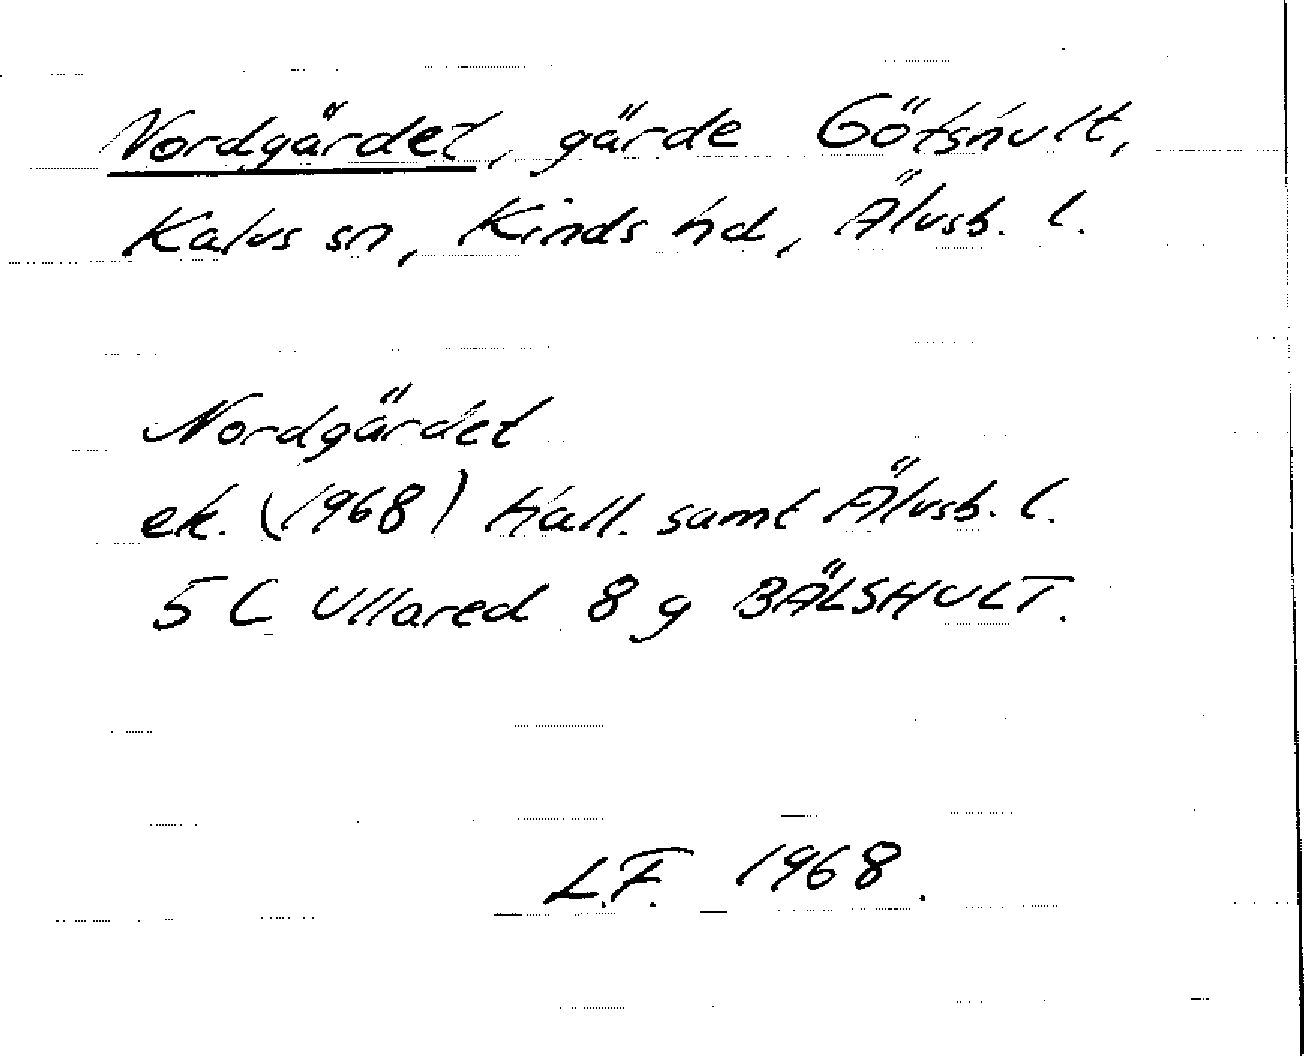 Nordgärdet, gärde Götshult,
Kalvs sn, Kinds hd, Älvsb. l.
Nordgärdet
ek. (1968) Hall. samt Älvsb. l.
5 C Ullared 8 g BÄLSHULT.
L.F. 1968.